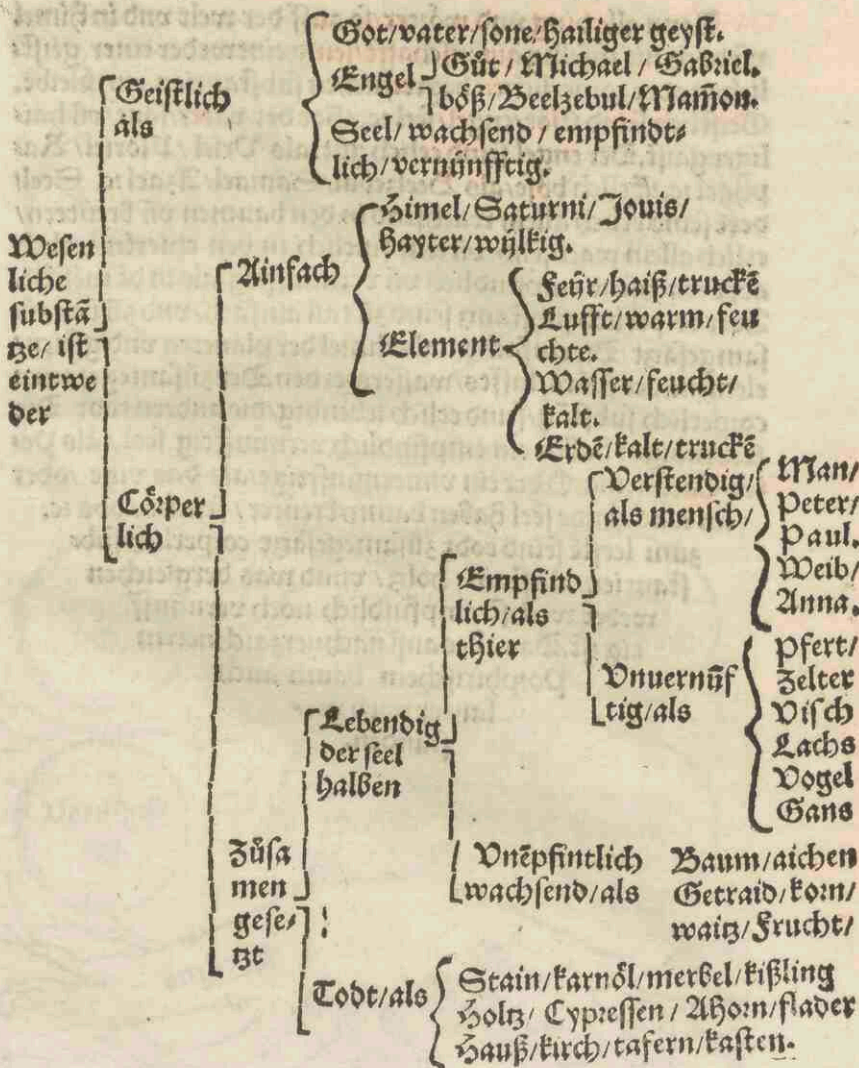 Wesen
liche
substā
tze/ ist
eintwe
der
Geistlich
als
Got/vater/sone/hailiger geyst.
Engel
Gůt / Michael / Gabriel.
böß/Beelzebul/Mam̄on.
Seel/ wachsend / empfindt⸗
lich/vernünfftig.
Cörper
lich
Ainfach
Himel/Saturni/Jouis/
hayter/wülkig.
Element
Feür/haiß/truckē
Lufft/warm/feu
chte.
Wasser/feucht/
kalt.
Erdē/kalt/truckē
Zůsa
men
gese⸗
tzt
Lebendig
der seel
halben
Empfind
lich/als
thier
Verstendig/
als mensch/
Man/
Peter/
Paul.
Weib/
Anna.
Vnuernüf
tig/als
Pfert/
Zelter
Visch
Lachs
Vogel
Gans
Vnēpfintlich
wachsend/als
Baum/aichen
Getraid/korn/
waitz/Frucht/
Todt/als
Stain/karnöl/merbel/kißling
Holtz/ Cypressen / Ahorn/flader
Hauß/kirch/tafern/kasten.